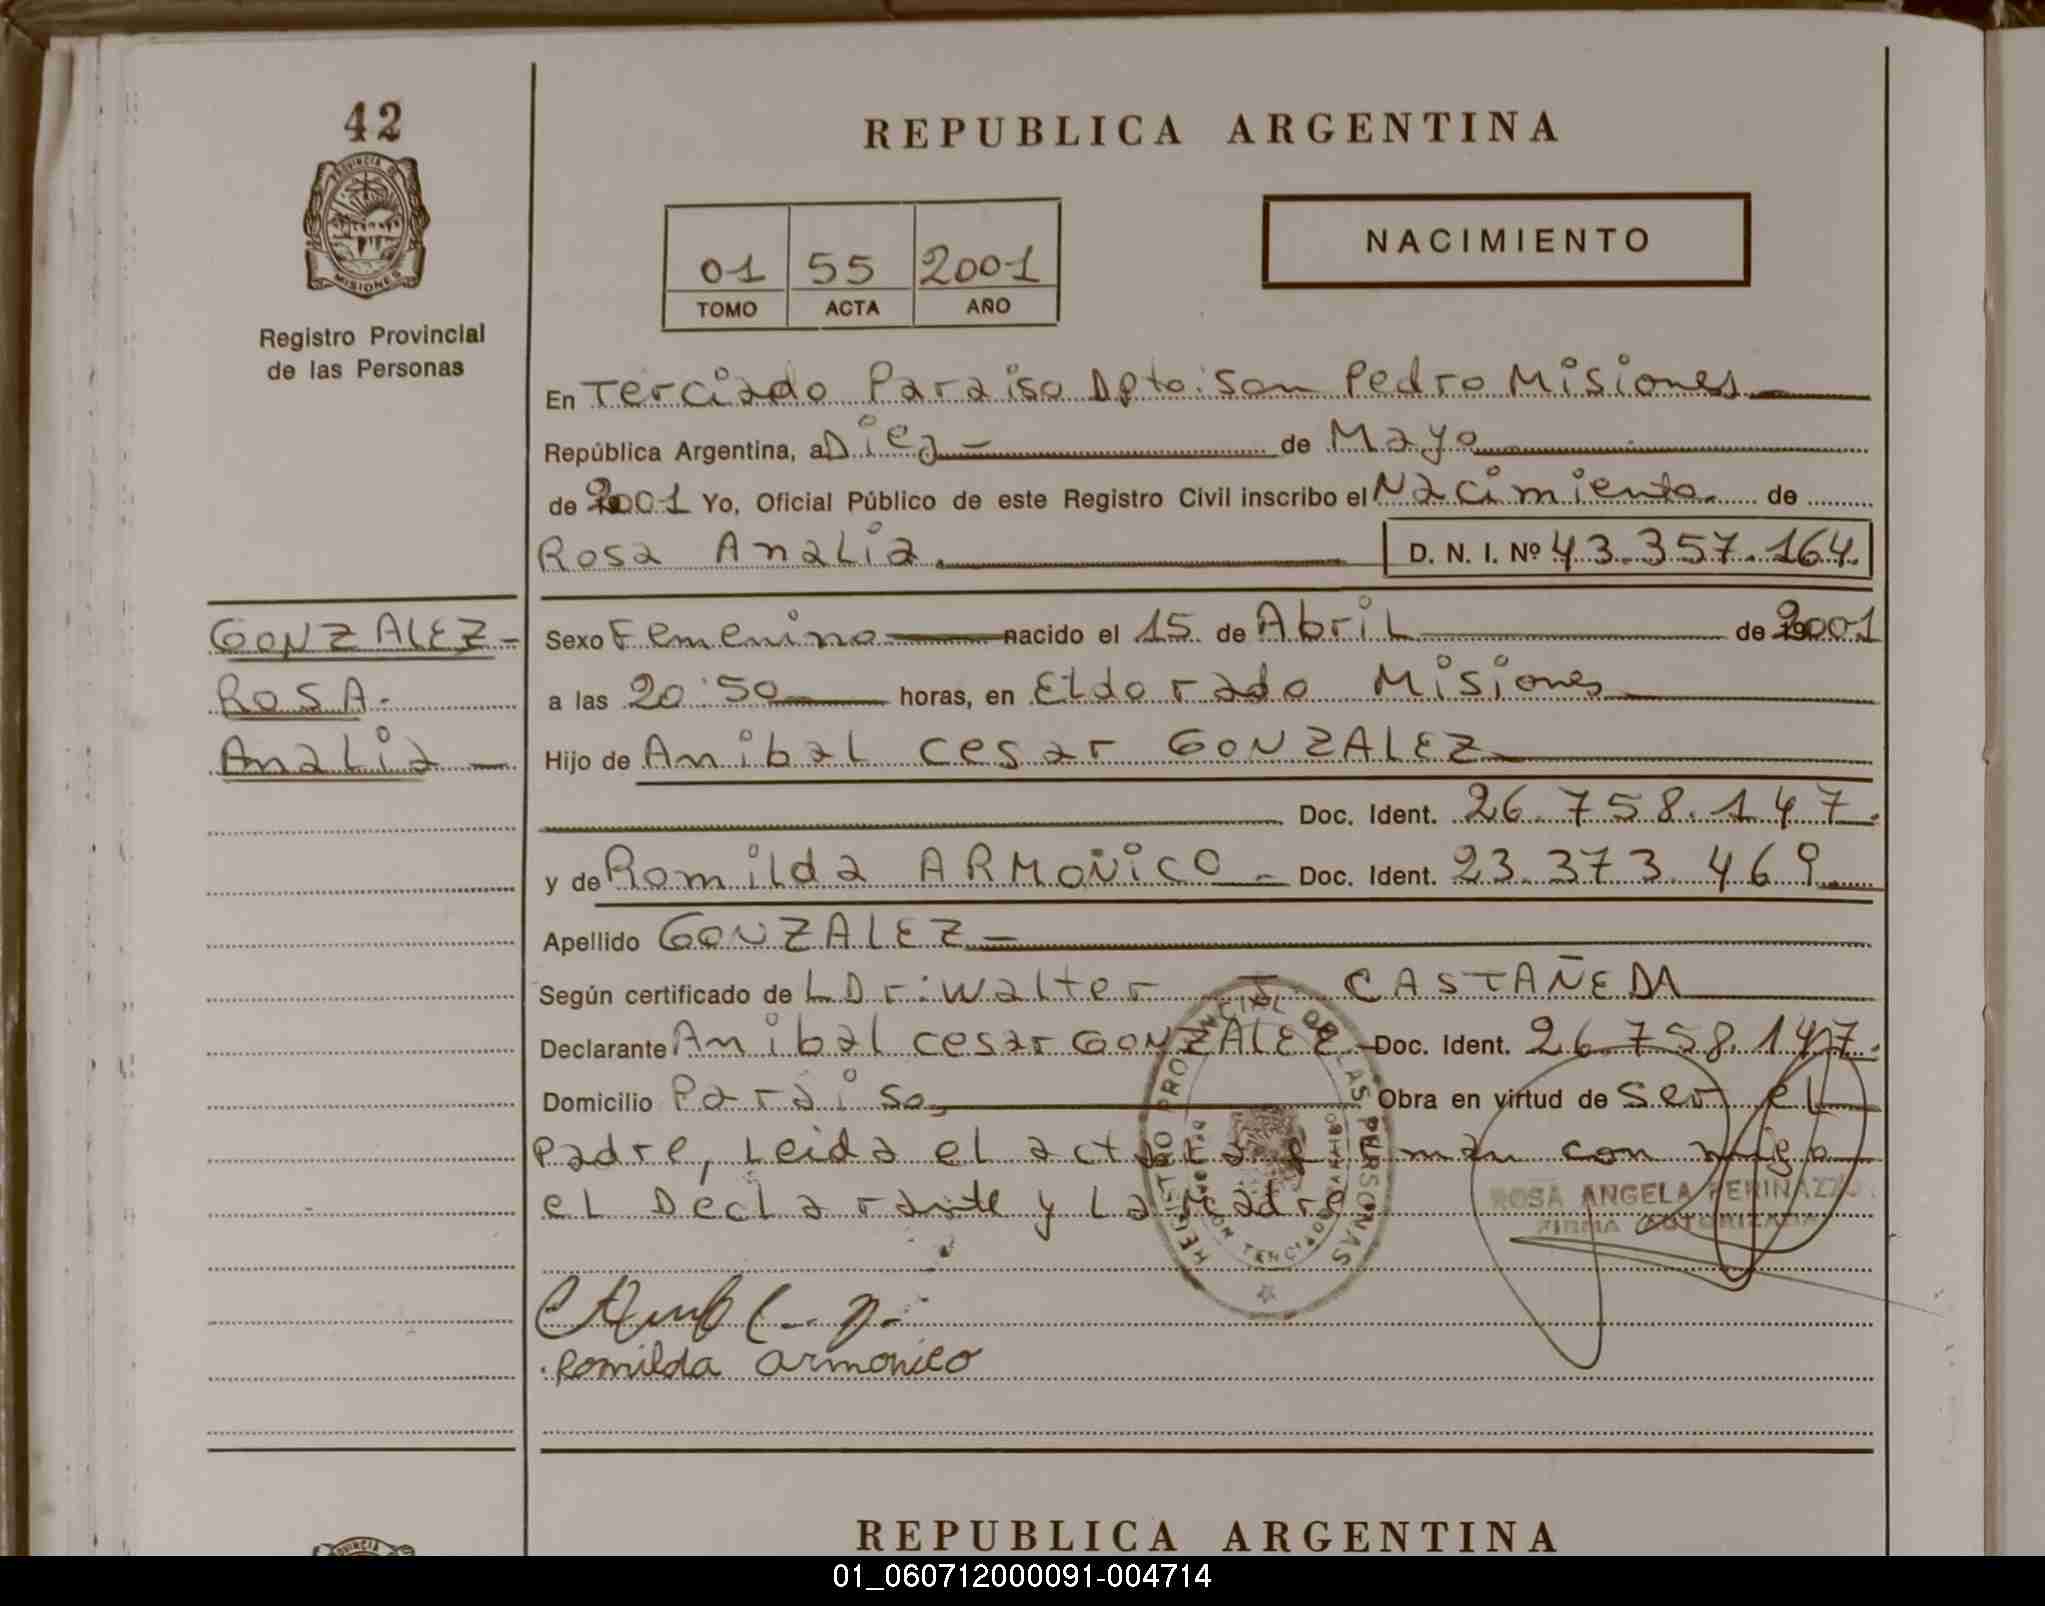 42
PROVINCIA DE
MISIONES
Registro Provincial
de las Personas
REPUBLICA ARGENTINA
01 55 2001
TOMO ACTA AÑO
NACIMIENTO
En Terciado Paraiso Dpto: San Pedro Misiones
República Argentina, a Diez de Mayo
de 2001 Yo, Oficial Público de este Registro Civil inscribo el Nacimiento de
Rosa Analia. D. N. I. Nº 43.357.164.
GONZALEZ-
ROSA-
Analia-
Sexo Femenino nacido el 15 de Abril de 2001
a las 20:50 horas, en Eldorado Misiones
Hijo de Anibal Cesar GONZALEZ
Doc. Ident. 26.758.147.
y de Romilda ARMONICO- Doc. Ident. 23.373.469
Apellido GONZALEZ-
Según certificado de L Dr: Walter J. CASTAÑEDA
Declarante Anibal Cesar GONZALEZ Doc. Ident. 26.758.147.
Domicilio Paraiso, Obra en virtud de ser el
padre, Leida el acta La firman con migo
el Declarante y La Madre
REGISTRO PROVINCIAL DE LAS PERSONAS
ROSA ANGELA PERINAZZO
FIRMA AUTORIZADA
Romilda Armonico
REPUBLICA ARGENTINA
PROVINCIA
01_060712000091-004714